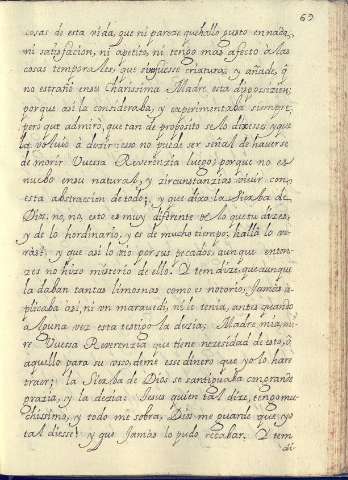 69
cosas de esta vida, que ni parece que hallo gusto en nada,
ni satisfacion, ni apetito, ni tengo mas afecto a las
cosas temporales, que si no fuesse criatura; y añade, q̃
no estrañò en su Charissima Madre esta dispozizion;
porque assi la consideraba, y experimentaba siempre;
pero que admirò, que tan de proposito se lo dixesse, y que
la volviò à dezir: esso no puede ser señal de haverse
de morir Vuesa Reverenzia luego; porque no es
nuebo en su natural, y zircunstanzias vivir con
esta abstraccion de todo; y que dixo la Sierba de
Dios, no, no, esto es muy diferente de lo que tu dizes,
y de lo hordinario, y es de mucho tiempo;
y que assi lo viò por sus pecados, aunque enton-
zes no hizo misterio de ello. Y tem dize, que aunque
la daban tantas limosnas como es notorio, Jamàs a-
plicaba a si, ni un maravedi, ni le tenia, antes quando
alguna vez esta testigo la dezia; Madre mia, mi-
re Vuesa Reverenzia que tiene nezesidad de esto, ò
aquello para su uso, deme esse dinero que yo lo harè
traer; la Sierba de Dios se santiguaba con grande
grazia, y la dezia: Jesus quien tal dize, tengo mu-
chissimo, y todo me sobra, Dios me guarde que yo
tal diesse! y que Jamàs lo pudo recabar. Y tem
di-